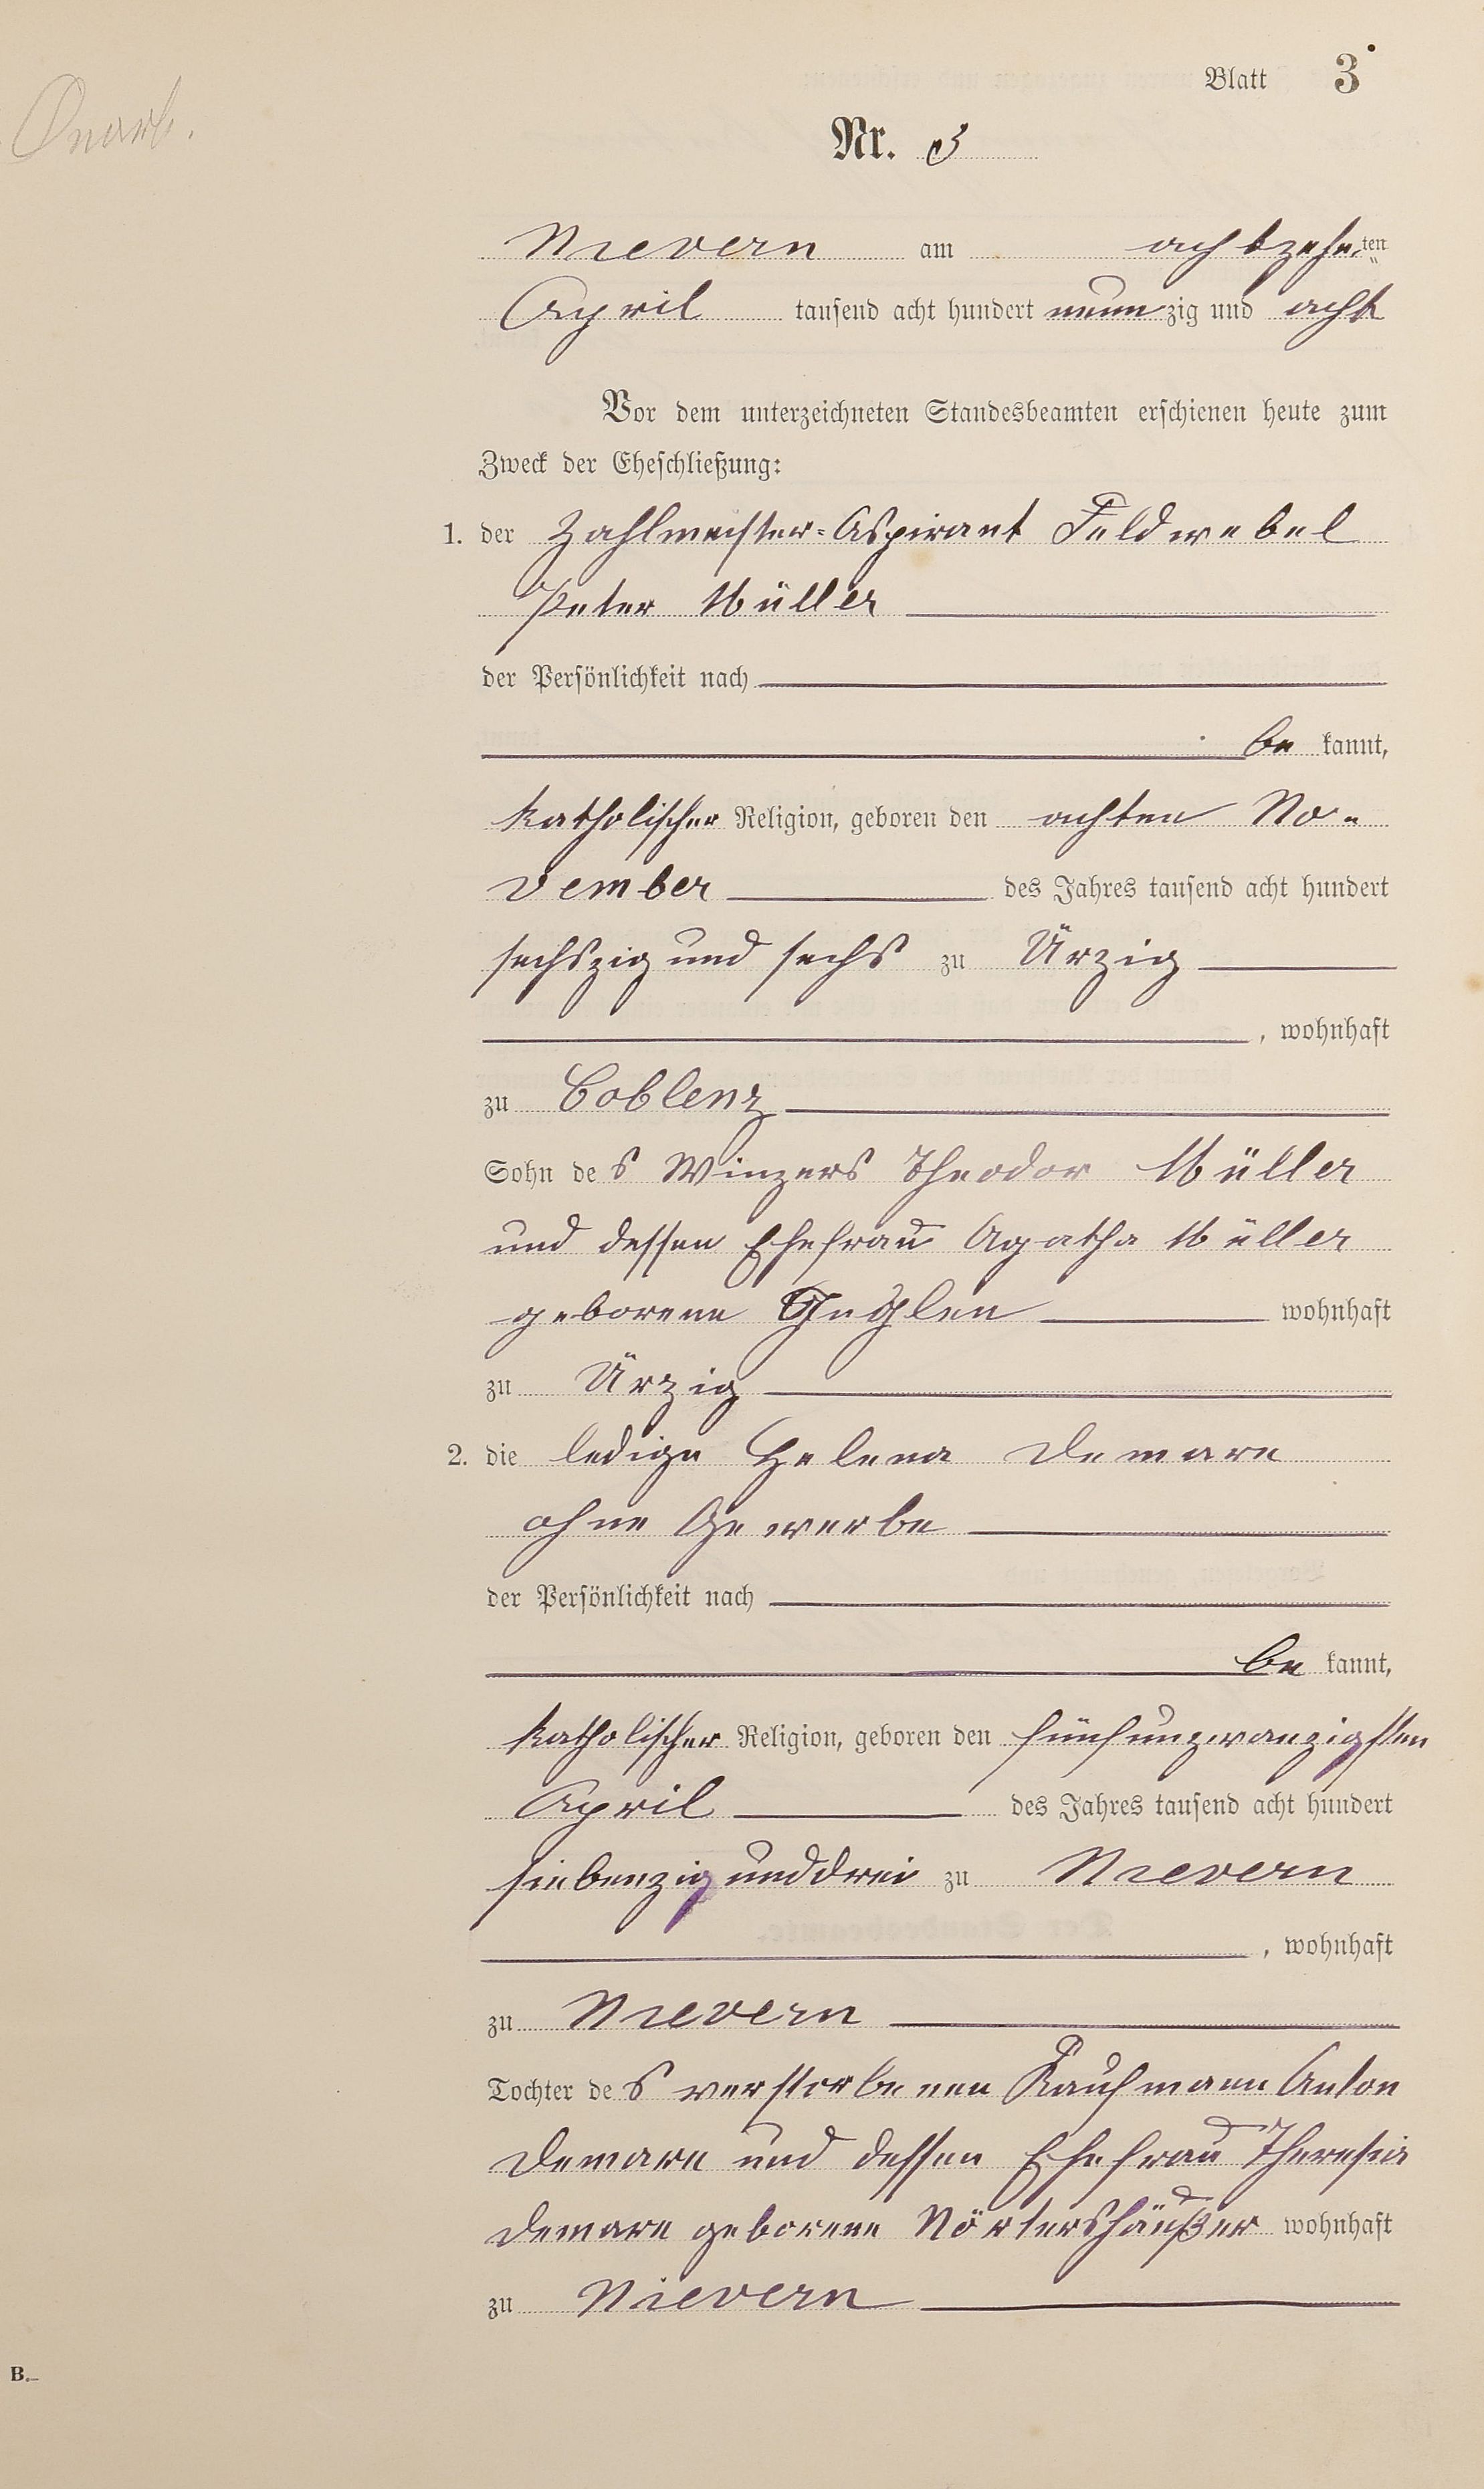 Blatt 3
Nr. 3
Nievern am achtzehnten
April tausend acht hundert neunzig und acht
Vor dem unterzeichneten Standesbeamten erschienen heute zum
Zweck der Eheschließung:
1. der Zahlmeister-Aspirant Feldwebel
Peter Müller
der Persönlichkeit nach
be kannt,
katholischer Religion, geboren den achten No-
vember des Jahres tausend acht hundert
sechszig und sechs zu Ürzig
, wohnhaft
zu Coblenz
Sohn des Winzers Theodor Müller
und dessen Ehefrau Agatha Müller
geborene wohnhaft
zu Ürzig
2. die ledige Helena Demare
ohne Gewerbe
der Persönlichkeit nach
be kannt,
katholischer Religion, geboren den fünfunzwanzigsten
April des Jahres tausend acht hundert
siebenzig und drei zu Nievern
, wohnhaft
zu Nievern
Tochter des verstorbenen Kaufmann Anton
Demare und dessen Ehefrau Theresia
Demare geborene Nörtershäußer wohnhaft
zu Nievern
B.